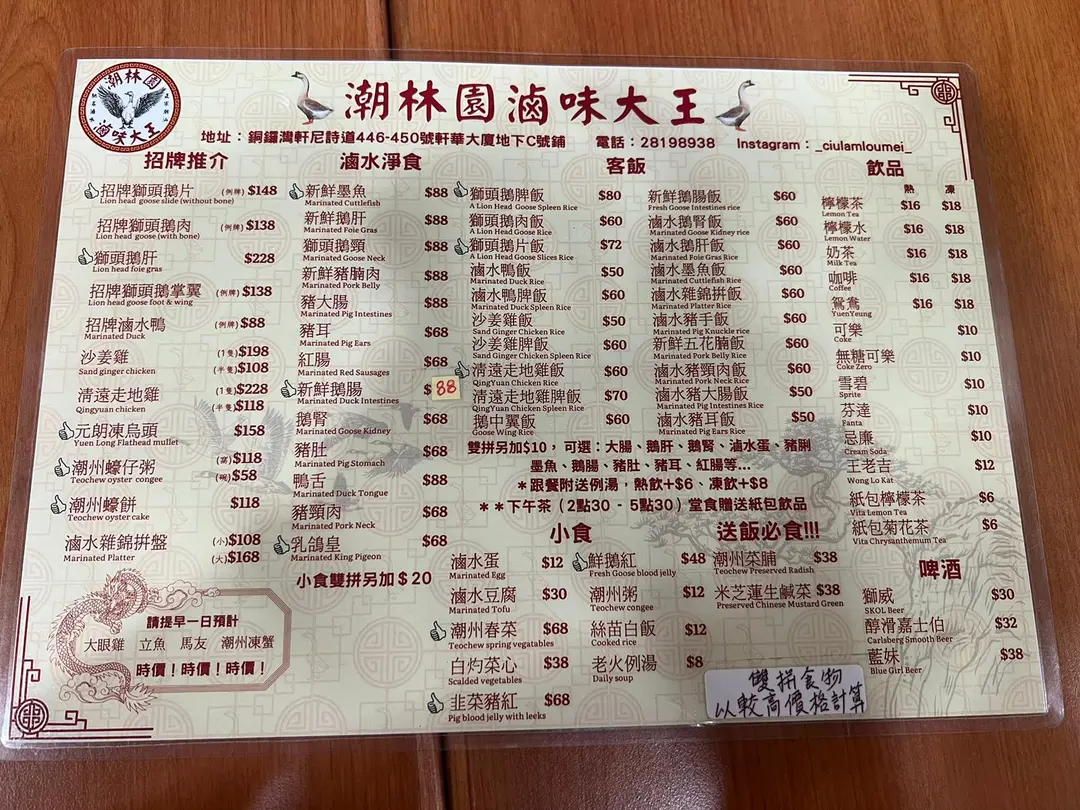 潮林園
滷味大王
潮林園滷味大王
地址：銅鑼灣軒尼詩道446-450號軒華大廈地下C號鋪 電話：28198938 Instagram：_ciulamloumei_
招牌推介
招牌獅頭鵝片 (例牌) $148
Lion head goose slide (without bone)
招牌獅頭鵝肉 (例牌) $138
Lion head goose (with bone)
獅頭鵝肝 $228
Lion head foie gras
招牌獅頭鵝掌翼 (例牌) $138
Lion head goose foot & wing
招牌滷水鴨 (例牌) $88
Marinated Duck
沙姜雞 (1隻) $198
(半隻) $108
Sand ginger chicken
清遠走地雞 (1隻) $228
(半隻) $118
Qingyuan chicken
元朗凍烏頭 $158
Yuen Long Flathead mullet
潮州蠔仔粥 (窩) $118
(碗) $58
Teochew oyster congee
潮州蠔餅 $118
Teochew oyster cake
滷水雜錦拼盤 (小) $108
(大) $168
Marinated Platter
請提早一日預訂
大眼雞 立魚 馬友 潮州凍蟹
時價！時價！時價！
滷水淨食
新鮮墨魚 $88
Marinated Cuttlefish
新鮮鵝肝 $88
Marinated Foie Gras
獅頭鵝頸 $88
Marinated Goose Neck
新鮮豬腩肉 $88
Marinated Pork Belly
豬大腸 $88
Marinated Pig Intestines
豬耳 $68
Marinated Pig Ears
紅腸 $68
Marinated Red Sausages
新鮮鵝腸 $88
Marinated Duck Intestines
鵝腎 $68
Marinated Goose Kidney
豬肚 $68
Marinated Pig Stomach
鴨舌 $88
Marinated Duck Tongue
豬頸肉 $68
Marinated Pork Neck
乳鴿皇 $68
Marinated King Pigeon
小食雙拼另加$20
客飯
獅頭鵝脾飯 $80
A Lion Head Goose Spleen Rice
獅頭鵝肉飯 $60
A Lion Head Goose Rice
獅頭鵝片飯 $72
A Lion Head Goose Slices Rice
滷水鴨飯 $50
Marinated Duck Rice
滷水鴨脾飯 $60
Marinated Duck Spleen Rice
沙姜雞飯 $50
Sand Ginger Chicken Rice
沙姜雞脾飯 $60
Sand Ginger Chicken Spleen Rice
清遠走地雞飯 $60
QingYuan Chicken Rice
清遠走地雞脾飯 $70
QingYuan Chicken Spleen Rice
鵝中翼飯 $60
Goose Wing Rice
新鮮鵝腸飯 $60
Fresh Goose Intestines rice
滷水鵝腎飯 $60
Marinated Goose Kidney rice
滷水鵝肝飯 $60
Marinated Foie Gras Rice
滷水墨魚飯 $60
Marinated Cuttlefish Rice
滷水雜錦拼飯 $60
Marinated Platter Rice
滷水豬手飯 $60
Marinated Pig Knuckle rice
新鮮五花腩飯 $60
Marinated Pork Belly Rice
滷水豬頸肉飯 $60
Marinated Pork Neck Rice
滷水豬大腸飯 $50
Marinated Pig Intestines Rice
滷水豬耳飯 $50
Marinated Pig Ears Rice
雙拼另加$10，可選：大腸、鵝肝、鵝腎、滷水蛋、豬脷
墨魚、鵝腸、豬肚、豬耳、紅腸等...
*跟餐附送例湯，熱飲+$6、凍飲+$8
**下午茶（2點30 - 5點30）堂食贈送紙包飲品
小食
滷水蛋 $12
Marinated Egg
滷水豆腐 $30
Marinated Tofu
潮州春菜 $68
Teochew spring vegatables
白灼菜心 $38
Scalded vegetables
韭菜豬紅 $68
Pig blood jelly with leeks
鮮鵝紅 $48
Fresh Goose blood jelly
潮州粥 $12
Teochew congee
絲苗白飯 $12
Cooked rice
老火例湯 $8
Daily soup
送飯必食!!!
潮州菜脯 $38
Teochew Preserved Radish
米芝蓮生鹹菜 $38
Preserved Chinese Mustard Green
飲品
熱 凍
檸檬茶 $16 $18
Lemon Tea
檸檬水 $16 $18
Lemon Water
奶茶 $16 $18
Milk Tea
咖啡 $16 $18
Coffee
鴛鴦 $16 $18
YuenYeung
可樂 $10
Coke
無糖可樂 $10
Coke Zero
雪碧 $10
Sprite
芬達 $10
Fanta
忌廉 $10
Cream Soda
王老吉 $12
Wong Lo Kat
紙包檸檬茶 $6
Vita Lemon Tea
紙包菊花茶 $6
Vita Chrysanthemum Tea
啤酒
獅威 $30
SKOL Beer
醇滑嘉士伯 $32
Carlsberg Smooth Beer
藍妹 $38
Blue Girl Beer
雙拼食物
以較高價格計算